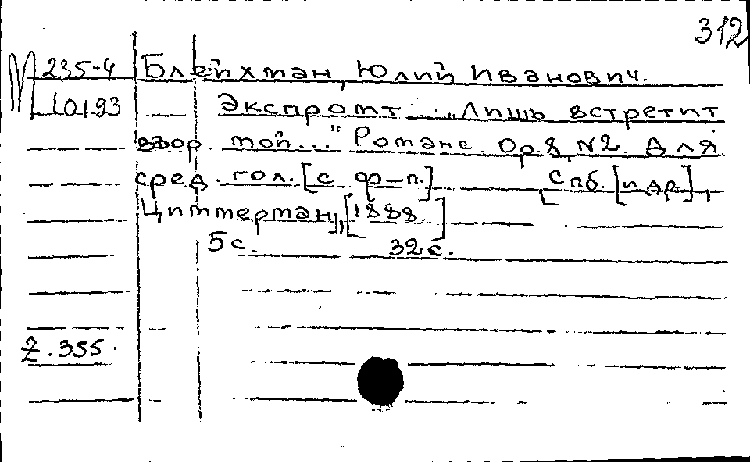 312
М 235-4 Блейхман, Юлий Иванович.
Экспромт. „Лишь встретит
взор мой..." Романс. Op.8, N2. Для
сред. гол. [с ф-п.] Спб. [и др.],
Циммерман, [1888]
5 с. 32 с.
Z.355.